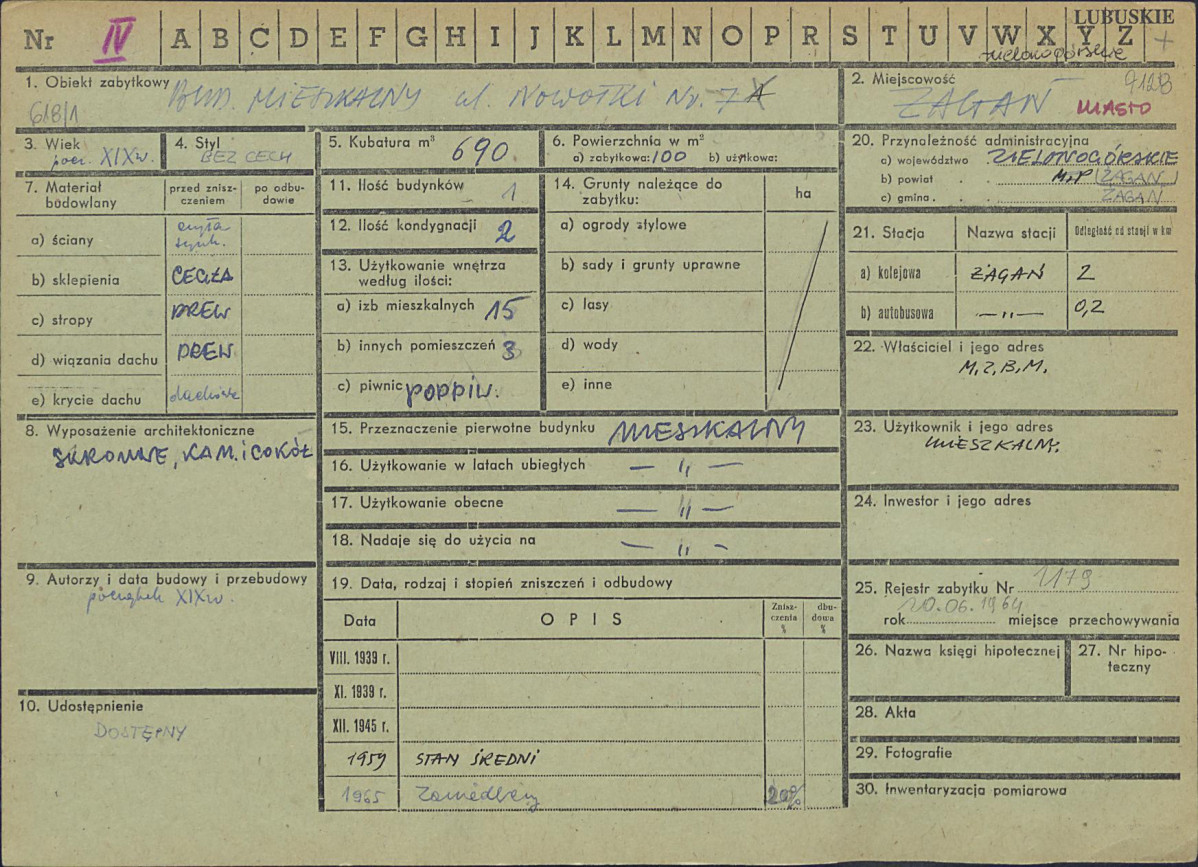 LUBUSKIE
Nr IV A B C D E F G H I J K L M N O P R S T U V W X Y Z +
zielonogórskie
1. Obiekt zabytkowy
BUD. MIESZKALNY ul. NOWOTKI Nr. 7
618/1
2. Miejscowość
9128
ŻAGAŃ MIASTO
3. Wiek
pocz. XIXw.
4. Styl
BEZ CECH
5. Kubatura m³ 690
6. Powierzchnia w m²
a) zabytkowa: 100 b) użytkowa:
7. Materiał budowlany
przed znisz-
czeniem
po odbu-
dowie
a) ściany
cegła
tynk.
b) sklepienia CEGŁA
c) stropy DREW
d) wiązania dachu DREW
e) krycie dachu dachówka
8. Wyposażenie architektoniczne
SKROMNE, KAM. COKÓŁ
9. Autorzy i data budowy i przebudowy
początek XIXw.
10. Udostępnienie
DOSTĘPNY
11. Ilość budynków 1
12. Ilość kondygnacji 2
13. Użytkowanie wnętrza
według ilości:
a) izb mieszkalnych 15
b) innych pomieszczeń 3
c) piwnic PODPIW.
14. Grunty należące do
zabytku:
ha
a) ogrody stylowe
b) sady i grunty uprawne
c) lasy
d) wody
e) inne
15. Przeznaczenie pierwotne budynku MIESZKALNY
16. Użytkowanie w latach ubiegłych — „ —
17. Użytkowanie obecne — „ —
18. Nadaje się do użycia na — „ —
19. Data, rodzaj i stopień zniszczeń i odbudowy
Data
OPIS
Znisz-
czenia
%
dbu-
dowa
%
VIII. 1939 r.
XI. 1939 r.
XII. 1945 r.
1959 STAN ŚREDNI
1965 Zaniedbany 20%
20. Przynależność administracyjna
a) województwo ZIELONOGÓRSKIE
b) powiat . . MRP (ŻAGAŃ)
c) gmina . . ŻAGAŃ
21. Stacja
Nazwa stacji
Odległość od stacji w km
a) kolejowa ŻAGAŃ 2
b) autobusowa — „ — 0,2
22. Właściciel i jego adres
M.Z.B.M.
23. Użytkownik i jego adres
MIESZKALNY.
24. Inwestor i jego adres
25. Rejestr zabytku Nr 1179
20.06.1964
rok miejsce przechowywania
26. Nazwa księgi hipotecznej
27. Nr hipo-
teczny
28. Akta
29. Fotografie
30. Inwentaryzacja pomiarowa